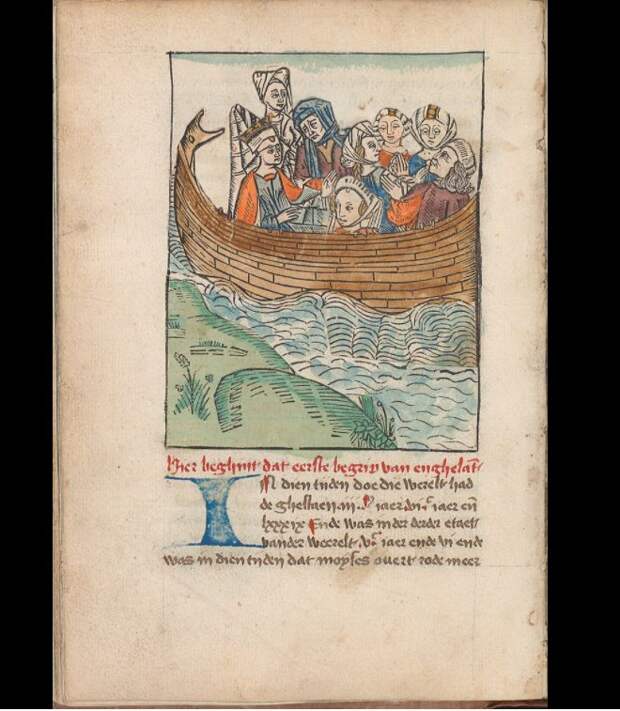 Hier beghint dat eerste begrip van enghelāt
IN dien tijden doe die werelt had
de ghestaen .iii. M jaer .vi. C jaer eñ
lxxxix Ende was in der derder etaet
vander weerelt .v. C jaer ende vi ende
was in dien tijden dat moyses overt rode meer